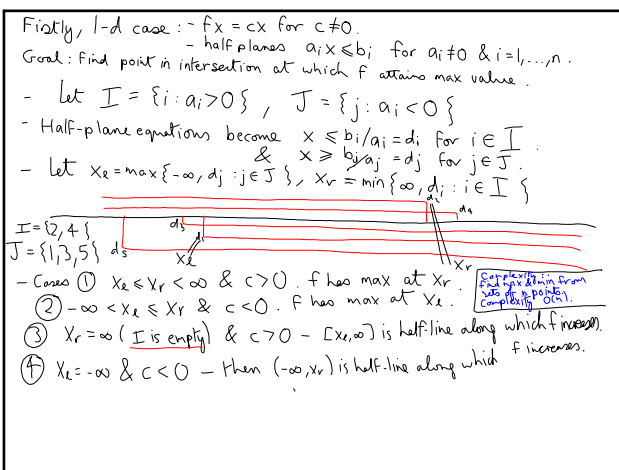 Firstly, 1-d case: - fx = cx for c≠0.
- half planes aᵢx ≤ bᵢ for aᵢ≠0 & i=1,...,n.
Goal: Find point in intersection at which f attains max value.
- Let I = {i: aᵢ>0}, J = {j: aᵢ<0}
- Half-plane equations become x ≤ bᵢ/aᵢ = dᵢ for i∈I
& x ≥ bⱼ/aⱼ = dⱼ for j∈J.
- Let xₗ = max{-∞, dⱼ: j∈J}, xᵣ = min{∞, dᵢ: i∈I}
d₂
d₄
I={2,4}
d₃
d₁
J={1,3,5}
d₅
xₗ
xᵣ
- Cases ① xₗ ≤ xᵣ < ∞ & c>0. f has max at xᵣ.
② -∞ < xₗ ≤ xᵣ & c<0. f has max at xₗ.
Complexity:
find max & min from
sets of n points
Complexity O(n).
③ xᵣ = ∞ (I is empty) & c>0 - [xₗ,∞] is half-line along which f increases.
④ xₗ = -∞ & c<0 - then (-∞,xᵣ) is half-line along which f increases.